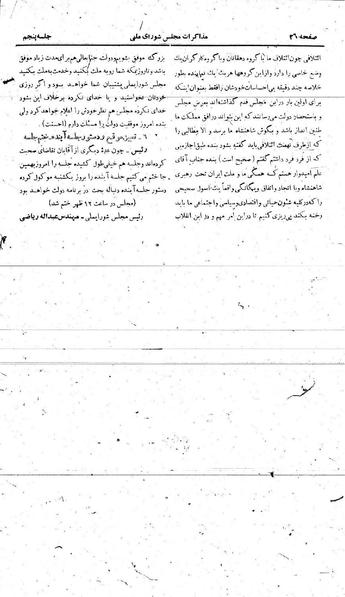 صفحه ۲۶
مذاکرات مجلس شورای ملی
جلسه پنجم
ائتلافی چون ائتلاف ما با گروه دهقانان و با گروه کارگران یک
وضع خاصی را دارد و از این گروهها هر یک یک نماینده بطور
خلاصه چند دقیقه بی احساسات خودشان را فقط بعنوان اینکه
برای اولین بار در این مجلس قدم گذاشته‌اند بعرض مجلس
و باستحضار دولت میرسانند که این بتواند در افق مملکت ما
طنین انداز باشد و بگوش شاهنشاه ما برسد و الا مطالبی را
که از طرف نهضت ائتلافی باید گفته بشود بنده طبق اجازه‌یی
که از فرد فرد داشتم گفتم (صحیح است) بنده جناب آقای
علم امیدوار هستم که همگی ما و ملت ایران تحت رهبری
شاهنشاه و با اتحاد و اتفاق و یگانگی واقعاً یک اصول صحیحی
را که در کلیه شئون حیاتی و اقتصادی و سیاسی و اجتماعی ما باید
رخنه بکند پی‌ریزی کنیم تا در این امر مهم و در این انقلاب
بزرگ موفق بشویم و دولت جنابعالی هم برای مدت زیاد موفق
باشد و تا روزیکه شما رو به ملک بکنید و خدمت به ملک بکنید
مجلس شورایملی پشتیبان شما خواهد بود و اگر روزی
خودتان نخواستید و یا خدای نکرده برخلاف این بشود
خدای نکرده مجلس هم نظر خودش را اعلام خواهد کرد ولی
بنده امروز موفقیت دولت را مسئلت دارم (احسنت)
۶ - تعیین موقع و دستور جلسه آینده - ختم جلسه
رئیس - چون عده دیگری از آقایان تقاضای صحبت
کرده‌اند جلسه هم خیلی طول کشیده جلسه را امروز بهمین
جا ختم می کنیم جلسه آینده را بروز یکشنبه موکول کرده
دستور جلسه آینده دنباله بحث در برنامه دولت خواهد بود
(مجلس در ساعت ۱۲ ظهر ختم شد)
رئیس مجلس شورایملی - مهندس عبدالله ریاضی